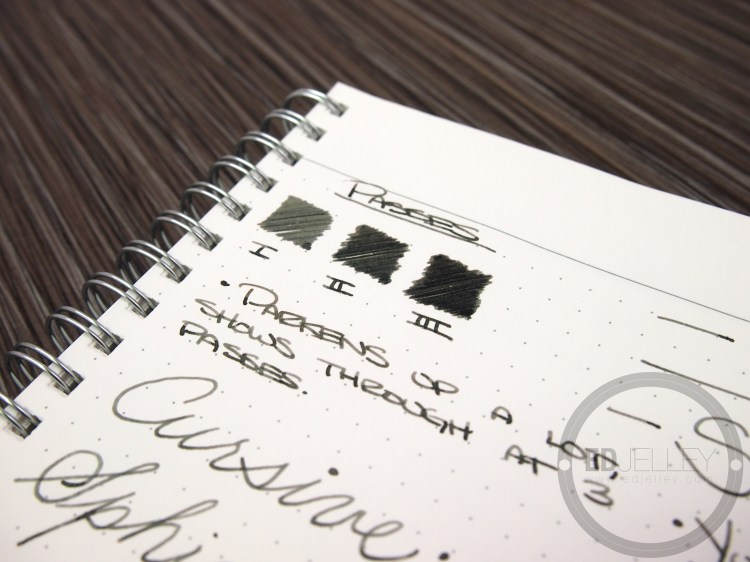 PASSES
I II III
• DARKENS UP A LOT,
SHOWS THROUGH AT 3
PASSES.
Cursive.
Sphi
EDJELLEY
www.edjelley.com